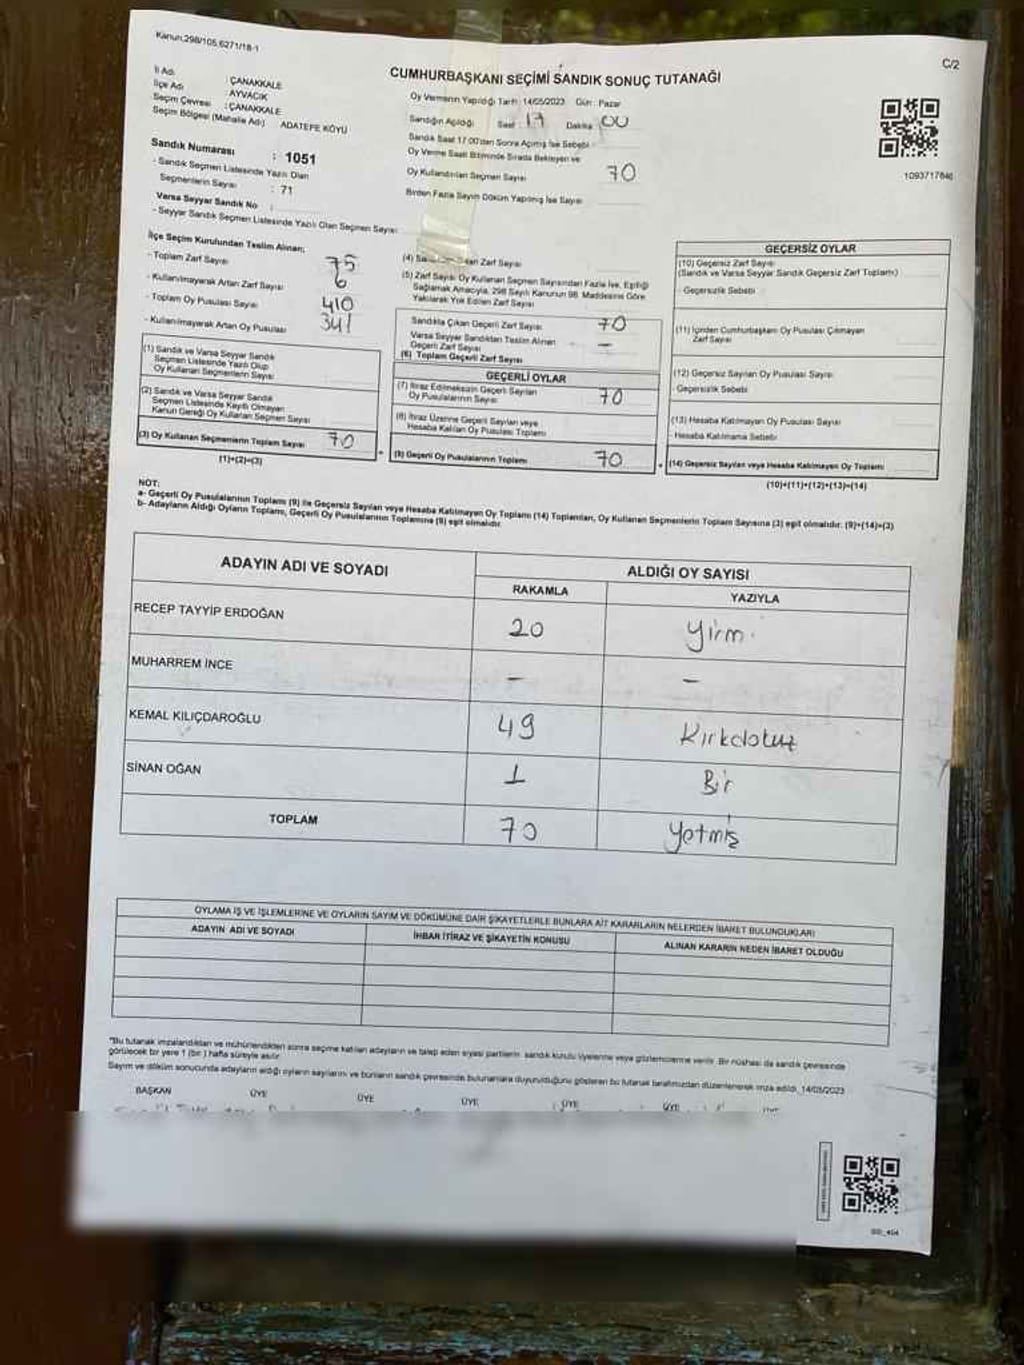 Kanun,298/105,6271/18-1
C/2
CUMHURBAŞKANI SEÇİMİ SANDIK SONUÇ TUTANAĞI
İl Adı : ÇANAKKALE
İlçe Adı : AYVACIK
Seçim Çevresi : ÇANAKKALE
Seçim Bölgesi (Mahalle Adı) ADATEPE KÖYÜ
Sandık Numarası : 1051
- Sandık Seçmen Listesinde Yazılı Olan
Seçmenlerin Sayısı : 71
Varsa Seyyar Sandık No :
- Seyyar Sandık Seçmen Listesinde Yazılı Olan Seçmen Sayısı
Oy Vermenin Yapıldığı Tarih: 14/05/2023 Gün: Pazar
Sandığın Açıldığı Saat: 17 Dakika 00
Sandık Saat 17:00'dan Sonra Açılmış İse Sebebi
Oy Verme Saati Bitiminde Sırada Bekleyen ve
Oy Kullandırılan Seçmen Sayısı 70
Birden Fazla Sayım Döküm Yapılmış İse Sayısı
1093717846
İlçe Seçim Kurulundan Teslim Alınan;
- Toplam Zarf Sayısı 75
- Kullanılmayarak Artan Zarf Sayısı 6
- Toplam Oy Pusulası Sayısı 410
- Kullanılmayarak Artan Oy Pusulası 341
(1) Sandık ve Varsa Seyyar Sandık
Seçmen Listesinde Yazılı Olup
Oy Kullanan Seçmenlerin Sayısı
(2) Sandık ve Varsa Seyyar Sandık
Seçmen Listesinde Kayıtlı Olmayan
Kanun Gereği Oy Kullanan Seçmen Sayısı
(3) Oy Kullanan Seçmenlerin Toplam Sayısı 70
(1)+(2)=(3)
(4) Zarf Sayısı
(5) Zarf Sayısı Oy Kullanan Seçmen Sayısından Fazla İse, Eşitliği
Sağlamak Amacıyla, 298 Sayılı Kanunun 98. Maddesine Göre
Yakılarak Yok Edilen Zarf Sayısı
Sandıkta Çıkan Geçerli Zarf Sayısı 70
Varsa Seyyar Sandıktan Teslim Alınan
Geçerli Zarf Sayısı -
(6) Toplam Geçerli Zarf Sayısı
GEÇERLİ OYLAR
(7) İtiraz Edilmeksizin Geçerli Sayılan
Oy Pusulalarının Sayısı 70
(8) İtiraz Üzerine Geçerli Sayılan veya
Hesaba Katılan Oy Pusulası Toplamı
(9) Geçerli Oy Pusulalarının Toplamı 70
GEÇERSİZ OYLAR
(10) Geçersiz Zarf Sayısı
(Sandık ve Varsa Seyyar Sandık Geçersiz Zarf Toplamı)
- Geçersizlik Sebebi
(11) İçinden Cumhurbaşkanı Oy Pusulası Çıkmayan
Zarf Sayısı
(12) Geçersiz Sayılan Oy Pusulası Sayısı
- Geçersizlik Sebebi
(13) Hesaba Katılmayan Oy Pusulası Sayısı
- Hesaba Katılmama Sebebi
(14) Geçersiz Sayılan veya Hesaba Katılmayan Oy Toplamı
(10)+(11)+(12)+(13)=(14)
NOT:
a- Geçerli Oy Pusulalarının Toplamı (9) ile Geçersiz Sayılan veya Hesaba Katılmayan Oy Toplamı (14) Toplamları, Oy Kullanan Seçmenlerin Toplam Sayısına (3) eşit olmalıdır. (9)+(14)=(3)
b- Adayların Aldığı Oyların Toplamı, Geçerli Oy Pusulalarının Toplamına (9) eşit olmalıdır.
ADAYIN ADI VE SOYADI ALDIĞI OY SAYISI
RAKAMLA YAZIYLA
RECEP TAYYİP ERDOĞAN 20 Yirmi
MUHARREM İNCE - -
KEMAL KILIÇDAROĞLU 49 Kırkdokuz
SİNAN OĞAN 1 Bir
TOPLAM 70 Yetmiş
OYLAMA İŞ VE İŞLEMLERİNE VE OYLARIN SAYIM VE DÖKÜMÜNE DAİR ŞİKAYETLERLE BUNLARA AİT KARARLARIN NELERDEN İBARET BULUNDUKLARI
ADAYIN ADI VE SOYADI İHBAR İTİRAZ VE ŞİKAYETİN KONUSU ALINAN KARARIN NEDEN İBARET OLDUĞU
"Bu tutanak imzalandıktan ve mühürlendikten sonra seçime katılan adayların ve talep eden siyasi partilerin sandık kurulu üyelerine veya gözlemcilerine verilir. Bir nüshası da sandık çevresinde
görülecek bir yere 1 (bir) hafta süreyle asılır.
Sayım ve döküm sonucunda adayların aldığı oyların sayılarını ve bunların sandık çevresinde bulunanlara duyurulduğunu gösteren bu tutanak tarafımızdan düzenlenerek imza edildi. 14/05/2023
BAŞKAN ÜYE ÜYE ÜYE ÜYE ÜYE ÜYE